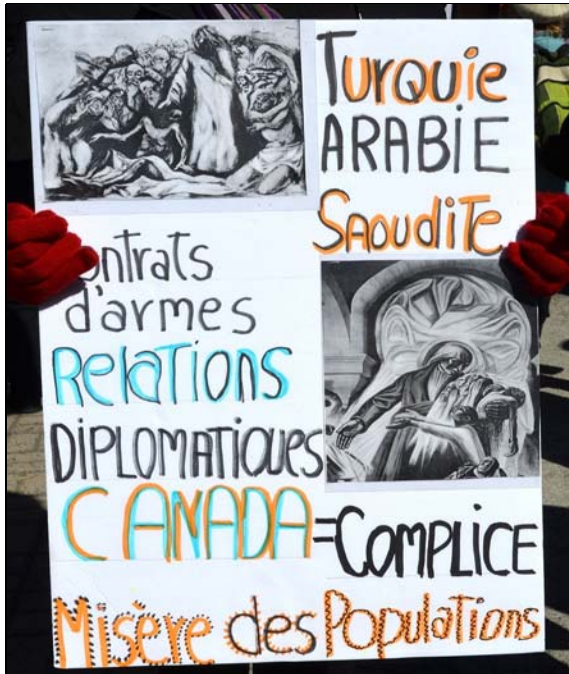 Turquie
ARABIE
SAOUDITE
ontrats
d'armes
RELATIONS
DIPLOMATIQUES
CANADA = COMPLICE
Misère des Populations